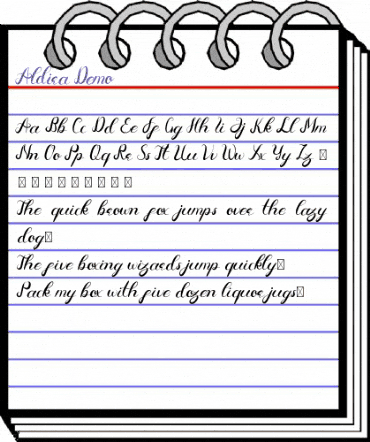 Aldica Demo
Aa Bb Cc Dd Ee Ff Gg Hh Ii Jj Kk Ll Mm
Nn Oo Pp Qq Rr Ss Tt Uu Vv Ww Xx Yy Zz □
□ □ □ □ □ □ □ □ □
The quick brown fox jumps over the lazy
dog□
The five boxing wizards jump quickly□
Pack my box with five dozen liquor jugs□